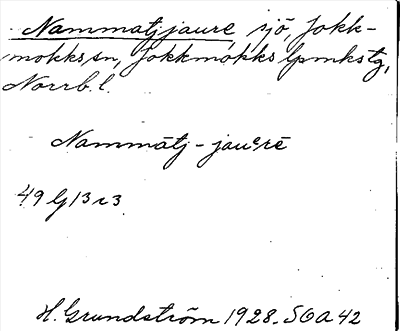 Nammatjjaure, sjö, Jokk-
mokks sn, Jokkmokks lpmkstg,
Norrb. l.
Nammātj - jauᵉrē
49 G 13 r 3
H. Grundström 1928. SOA 42